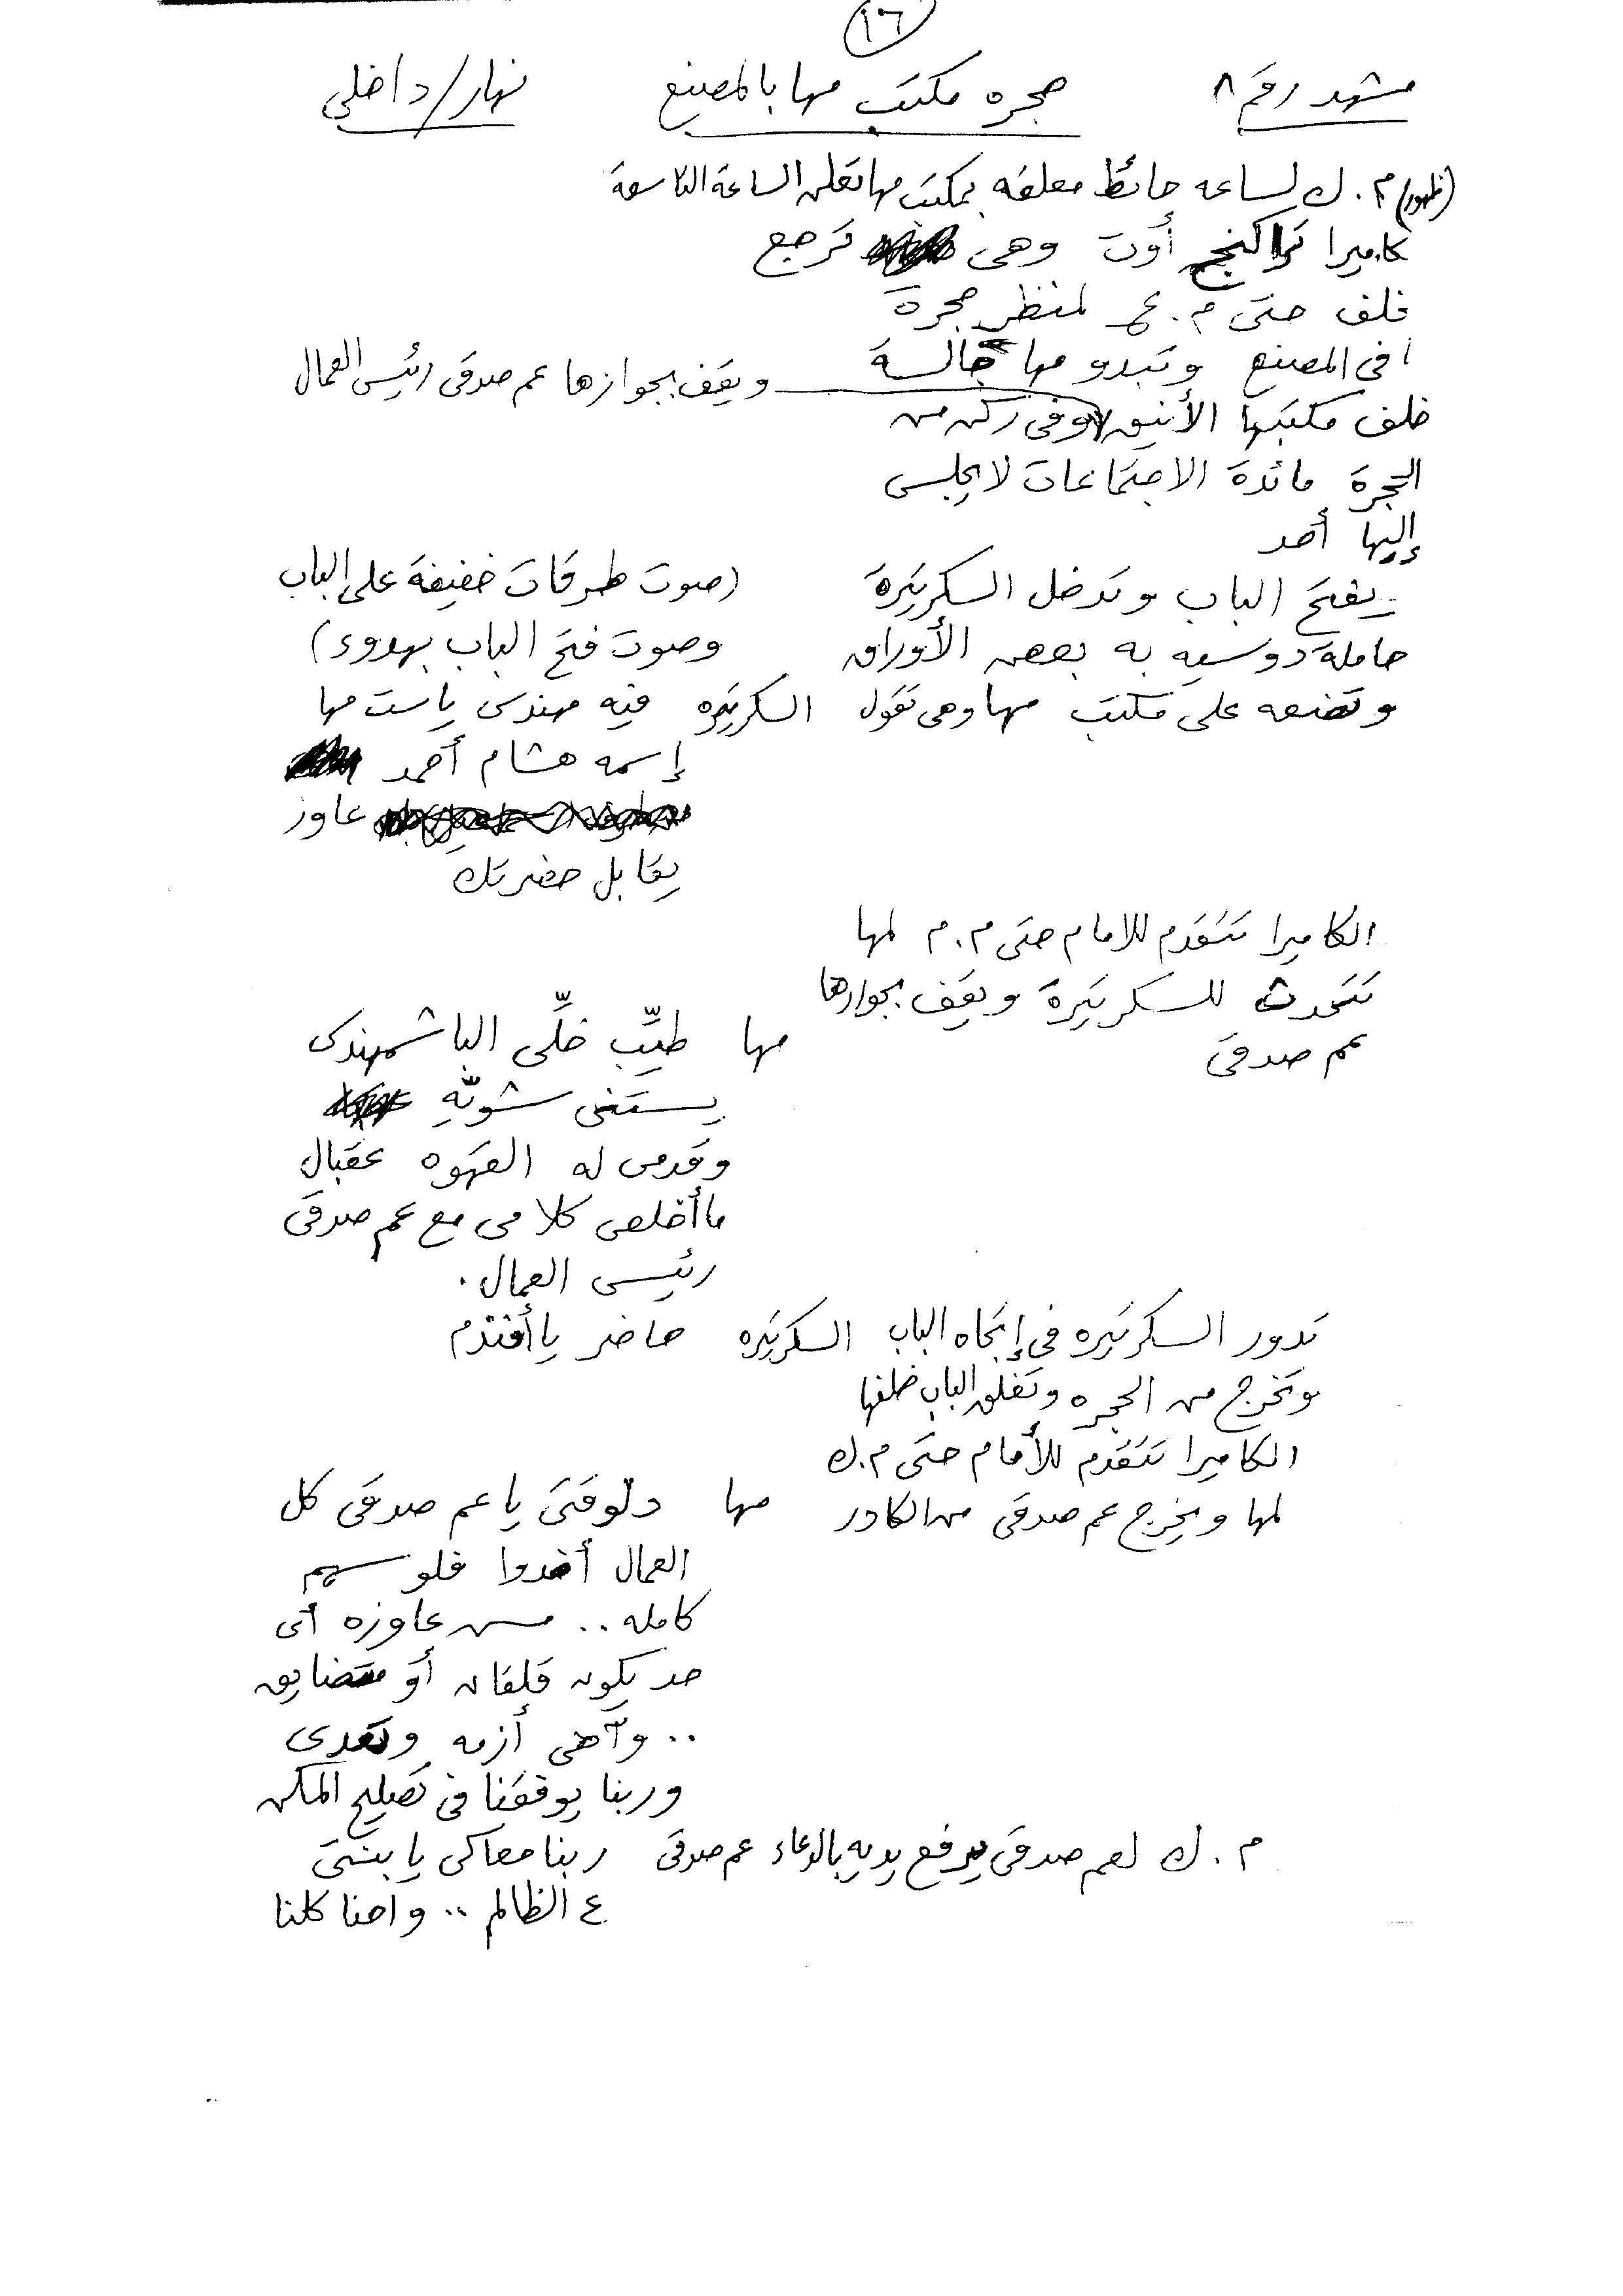 ١٦
مشهد رقم ٨ حجره مكتب مها بالمصنع نهار/داخلي
(ظهور) م. ك لساعه حائط معلقه بمكتب مها تعلن الساعة التاسعة
كاميرا تراكنج أوت وهى ترجع
خلف حتى م. ع لمنظر حجرة
فى المصنع وتبدو مها جالسة
ويقف بجوازها عم صدقى رئيس العمال
خلف مكتبها الأنيق وفى ركن من
الحجرة مائدة الاجتماعات لا يجلس
إليها أحد
يفتح الباب وتدخل السكرتيرة (صوت طرقات خفيفة على الباب
حاملة دوسيه به بعض الأوراق وصوت فتح الباب بهدوء)
وتضعه على مكتب مها وهى تقول السكرتيره فيه مهندس ياست مها
إسمه هشام أحمد
عاوز
يقابل حضرتك
الكاميرا تتقدم للامام حتى م. م لمها
تتحدث للسكرتيرة ويقف بجوارها
عم صدقى
مها طيِّب خلِّى الباشمهندس
يستنى شويّهِ
وقدمى له القهوه عقبال
ماأخلص كلامى مع عم صدقى
رئيس العمال.
تدور السكرتيره فى إتجاه الباب السكرتيره حاضر ياأفندم
وتخرج من الحجره وتغلق الباب خلفها
الكاميرا تتقدم للأمام حتى م. ك
لمها ويخرج عم صدقى من الكادر مها دلوقتى ياعم صدقى كل
العمال أخدوا فلوسهم
كامله .. مش عاوزه أى
حد يكون قلقان أو متضايق
.. وآهى أزمه وتعدى
وربنا يوفقنا فى تصليح المكن
م. ك لعم صدقى يرفع يديه بالدعاء عم صدقى ربنا معاكى يا بنتى
ع الظالم .. واحنا كلنا